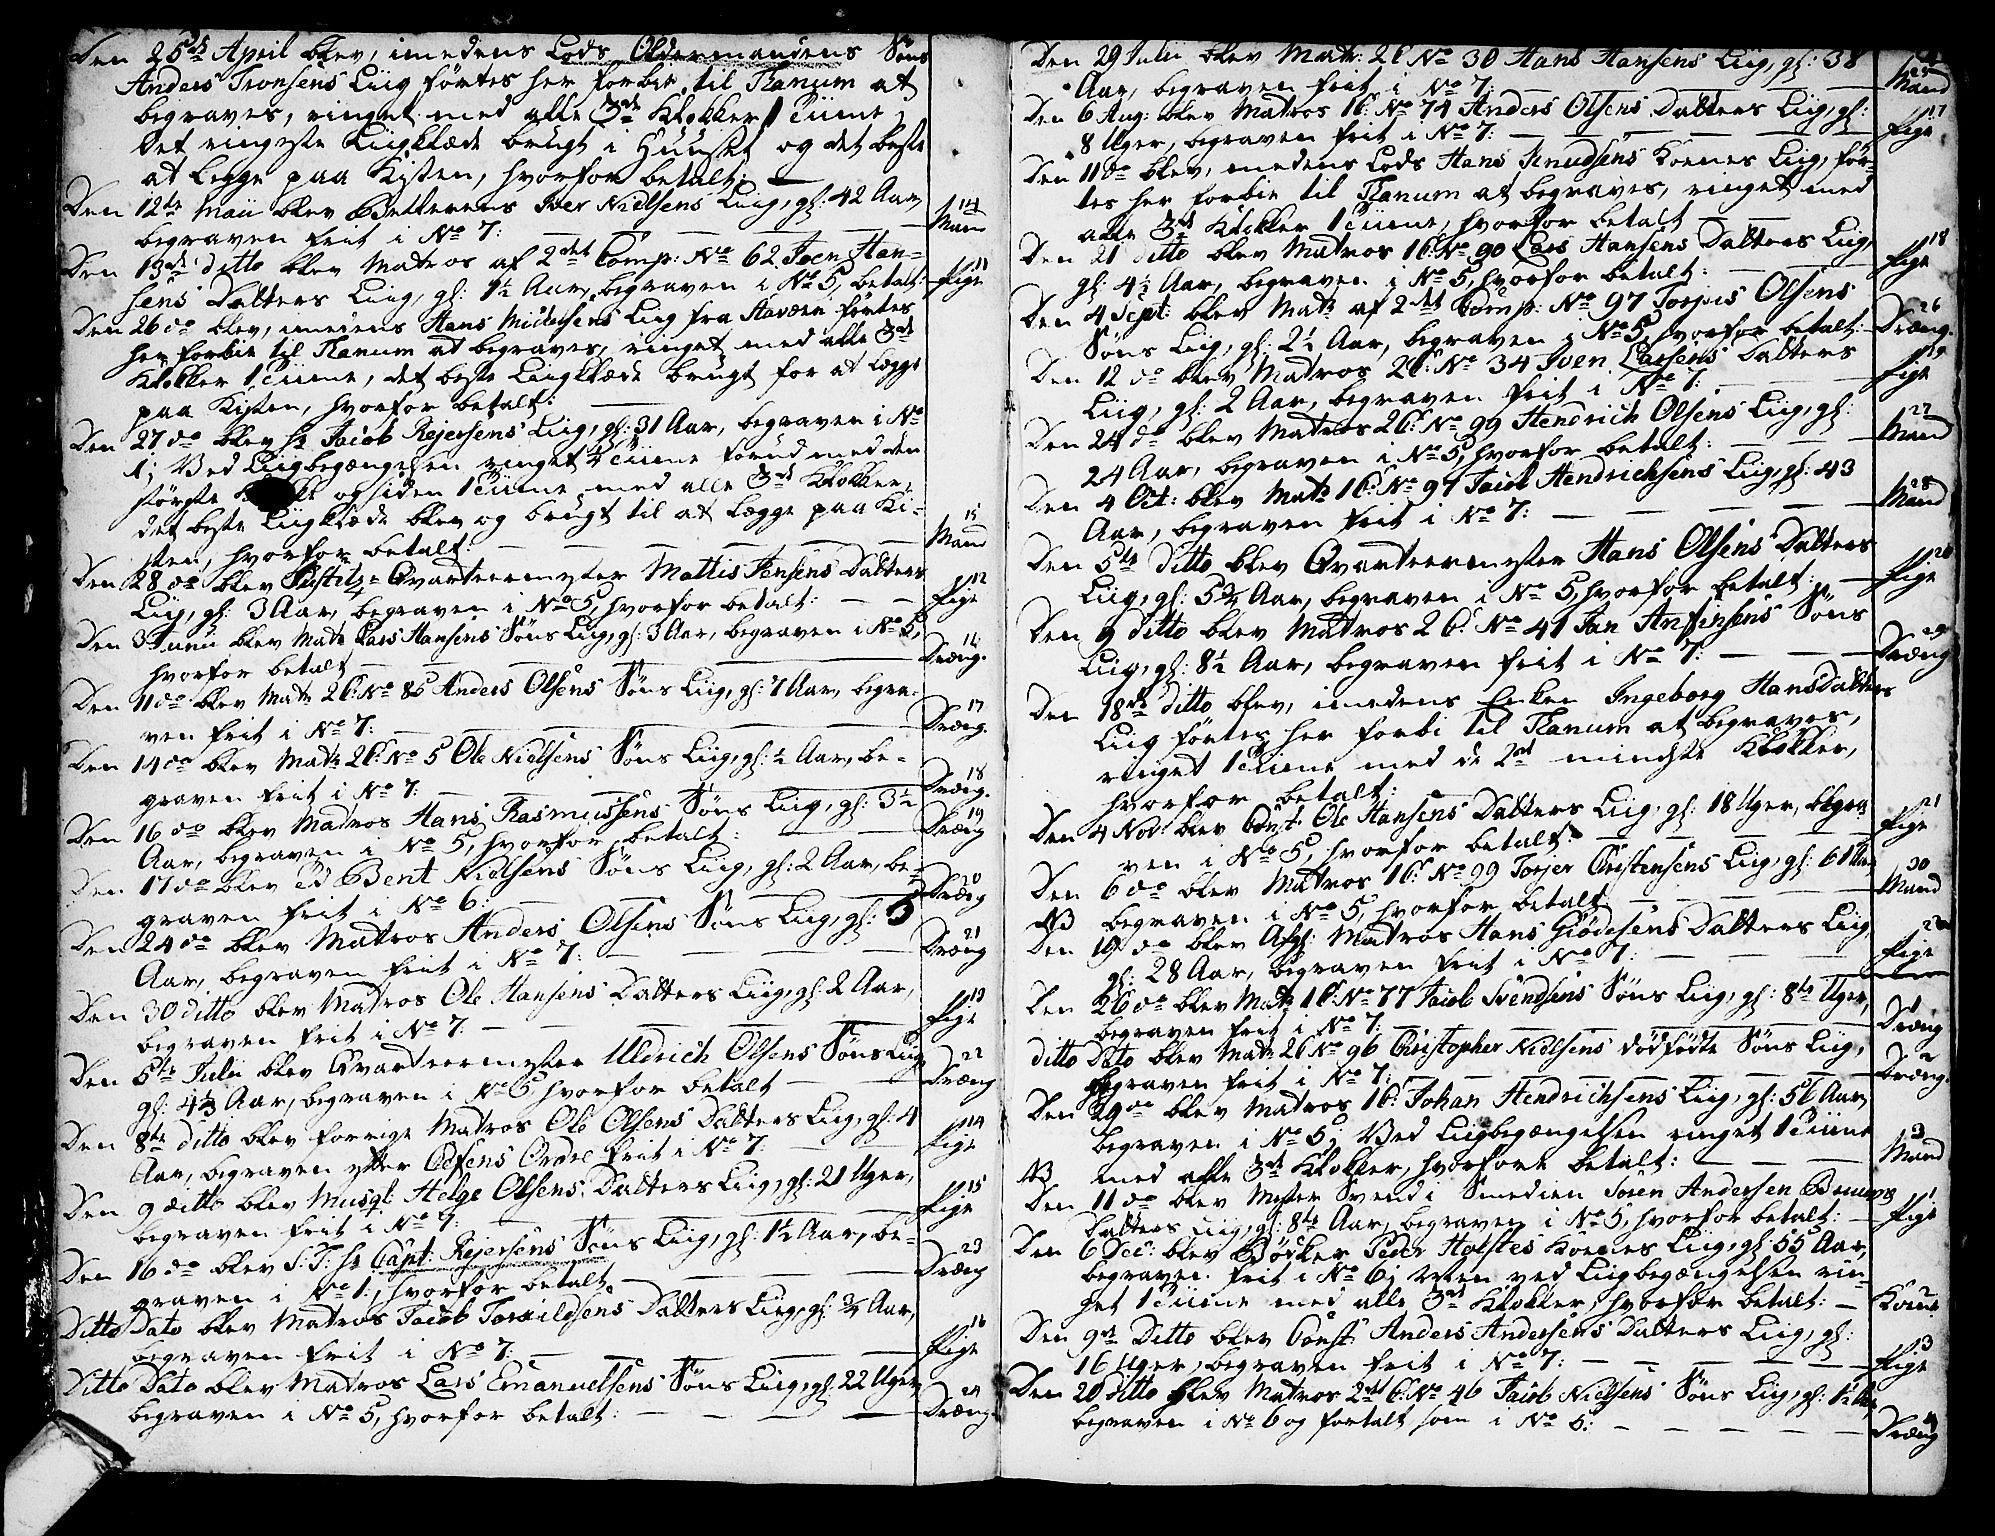 Den 25de April blev, imedens Lods Oldermandens Söns
Anders Tronsens Liig förtes her forbie til Tanum at
begraves, ringet med alle 3de Klokker 1 Tiime;
det ringeste Liigklæde brugt i Huuset og det beste
at legge paa Kisten, hvorfor betalt: —
Den 12te Maii blev Betlerens Iver Nielsens Liig, gl: 42 Aar, 14
begraven frit i No 7: — Mand
Den 13de ditto blev Matros af 2det Comp: No 62 Joen Han-
sens Datters Liig, gl: 1½ Aar, begraven i No 5, betalt: 11 Pige
Den 26 do blev, imedens Hans Liig fra Stavæen förtes
her forbie til Tanum at begraves, ringet med alle 3de
Klokker 1 Tiime, det beste Liigklæde brugt for at legge
paa Kisten, hvorfor betalt: —
Den 27 do blev Hr Jacob Rejersens Liig, gl: 31 Aar, begraven i No
1; Ved Liigbegængelsen ringet Tiime forud med den
störste og siden 1 Tiime med alle 3de Klokker,
det beste Liigklæde blev og brugt til at legge paa Ki- 15
sten, hvorfor betalt: — Mand
Den 28 do blev Justitz-Qvarteermester Mattis Jensens Datters 12
Liig, gl: 3 Aar, begraven i No 5, hvorfor betalt: — Pige
Den 3 Junii blev Matr: Lars Hansens Söns Liig, gl: 3 Aar, begraven i No 5, 16
hvorfor betalt — Dræng.
Den 11 do blev Matr: 2C: No 86 Anders Olsens Söns Liig, gl: 7 Aar, begra- 17
ven frit i No 7: — Dræng.
Den 14 do blev Matr: 2C: No 5 Ole Nielsens Söns Liig, gl: ½ Aar, be- 18
graven frit i No 7: — Dræng.
Den 16 do blev Matros Hans Rasmussens Söns Liig, gl: 3½ 19
Aar, begraven i No 5, hvorfor betalt: — Dræng
Den 17 do blev Bent Nielsens Söns Liig, gl: 2 Aar, be- 20
graven frit i No 6: — Dræng
Den 24 do blev Matros Anders Olsens Söns Liig, gl: 5 21
Aar, begraven frit i No 7: — Dræng
Den 30 ditto blev Matros Ole Hansens Datters Liig, gl: 2 Aar, 13
begraven frit i No 7: — Pige
Den 5te Julii blev Qvarteermester Uldrich Olsens Söns Liig 22
gl: 4⅓ Aar, begraven i No 5, hvorfor betalt — Dræng
Den 8te ditto blev forrige Matros Ole Olsens Datters Liig, gl: 4 14
Aar, begraven efter Ordre frit i No 7: — Pige
Den 9 ditto blev Musqt: Helge Olsens Datters Liig, gl: 21 Uger, 15
begraven frit i No 7: — Pige
Den 16 do blev S:T: Hr Capt: Rejersens Söns Liig, gl: 1½ Aar, be- 23
graven i No 1:, hvorfor betalt — Dræng
Ditto Dato blev Matros Jacob Torvildsens Datters Liig, gl: ¾ Aar, 16
begraven frit i No 7: — Pige
Ditto Dato blev Matros Lars Emanuelsens Söns Liig, gl: 22 Uger, 24
begraven i No 5, hvorfor betalt: — Dræng
Den 29 Julii blev Matr: 2C No 30 Hans Hansens Liig, gl: 38 25
Aar, begraven frit i No 7: — Mand
Den 6 Aug: blev Matros 1C: No 74 Anders Olsens Datters Liig, gl: 17
8 Uger, begraven frit i No 7: — Pige
Den 11 do blev, imedens Lods Hans Knudsens Koenes Liig, för-
tes her forbie til Tanum at begraves, ringet med
alle 3de Klokker 1 Tiime, hvorfor betalt —
Den 21 ditto blev Matros 1C: No 90 Lars Hansens Datters Liig, 18
gl: 4½ Aar, begraven i No 5, hvorfor betalt: — Pige
Den 4 Sept: blev Matr: af 2det Comp: No 97 Torjus Olsens 26
Söns Liig, gl: 2½ Aar, begraven i No 5, hvorfor betalt: — Dræng.
Den 12 do blev Matros 2C: No 34 Iven Larsens Datters 19
Liig, gl: 2 Aar, begraven frit i No 7: — Pige
Den 24 do blev Matros 2C: No 99 Hendrich Olsens Liig, gl: 27
24 Aar, begraven i No 5, hvorfor betalt: — Mand
Den 4 Oct: blev Matr: 1C: No 97 Jacob Hendrichsens Liig, gl: 43 28
Aar, begraven frit i No 7: — Mand
Den 5te Ditto blev Qvarteermester Hans Olsens Datters 20
Liig, gl: 5¾ Aar, begraven i No 5, hvorfor betalt: — Pige
Den 9 ditto blev Matros 2C: No 41 Jan Anfinsens Söns 29
Liig, gl: 8½ Aar, begraven frit i No 7: — Dræng
Den 18de ditto blev, imedens Enken Ingeborg Hansdatters
Liig förtes her forbi til Tanum at begraves,
ringet 1 Tiime med de 2de mindste Klokker,
hvorfor betalt:
Den 4 Nov: blev Const: Ole Hansens Datters Liig, gl: 18 Uger, begra- 21
ven i No 5, hvorfor betalt: — Pige
Den 6 do blev Matros 1C: No 99 Torjer Christensens Liig, gl: 61 Aar, 30
NB begraven i No 5, hvorfor betalt — Mand
Den 19 do blev Afg: Matros Hans Giödesens Datters Liig, 22
gl: 28 Aar, begraven frit i No 7: — Pige
Den 26 do blev Matr: 1C: No 77 Jacob Svendsens Söns Liig, gl: 8te Uger, 1
begraven frit i No 7: — Dræng
ditto Dato blev Matr: 2C No 96 Christopher Nielsens dödfödte Söns Liig, 2
begraven frit i No 7: — Dræng.
Den 29 do blev Matros 1C: Johan Hendrichsens Liig, gl: 56 Aar,
begraven i No 5; Ved Liigbegængelsen ringet 1 Tiime 3
NB med alle 3de Klokker, hvorfore betalt: — Mand
Den 11 do blev Mester Svend i Smedien Soren Andersen Bruuns 1
Datters Liig, gl: 8te Aar, begraven i No 5, hvorfor betalt: — Pige
Den 6 Dec: blev Bödker Peder Holstes Koenes Liig, gl: 55 Aar,
begraven frit i No 6; Men ved Liigbegængelsen rin-
get 1 Tiime med alle 3de Klokker, hvorfor betalt: — Koene
Den 9de Ditto blev Const: Anders Andersens Datters Liig, gl: 3
16 Uger, begraven frit i No 7: — Pige
Den 20 ditto blev Matros 2det C: No 46 Jacob Nielsens Söns Liig, gl: 1½ Aar, 4
begraven i No 6 og fortalt som i No 5: — Dræng